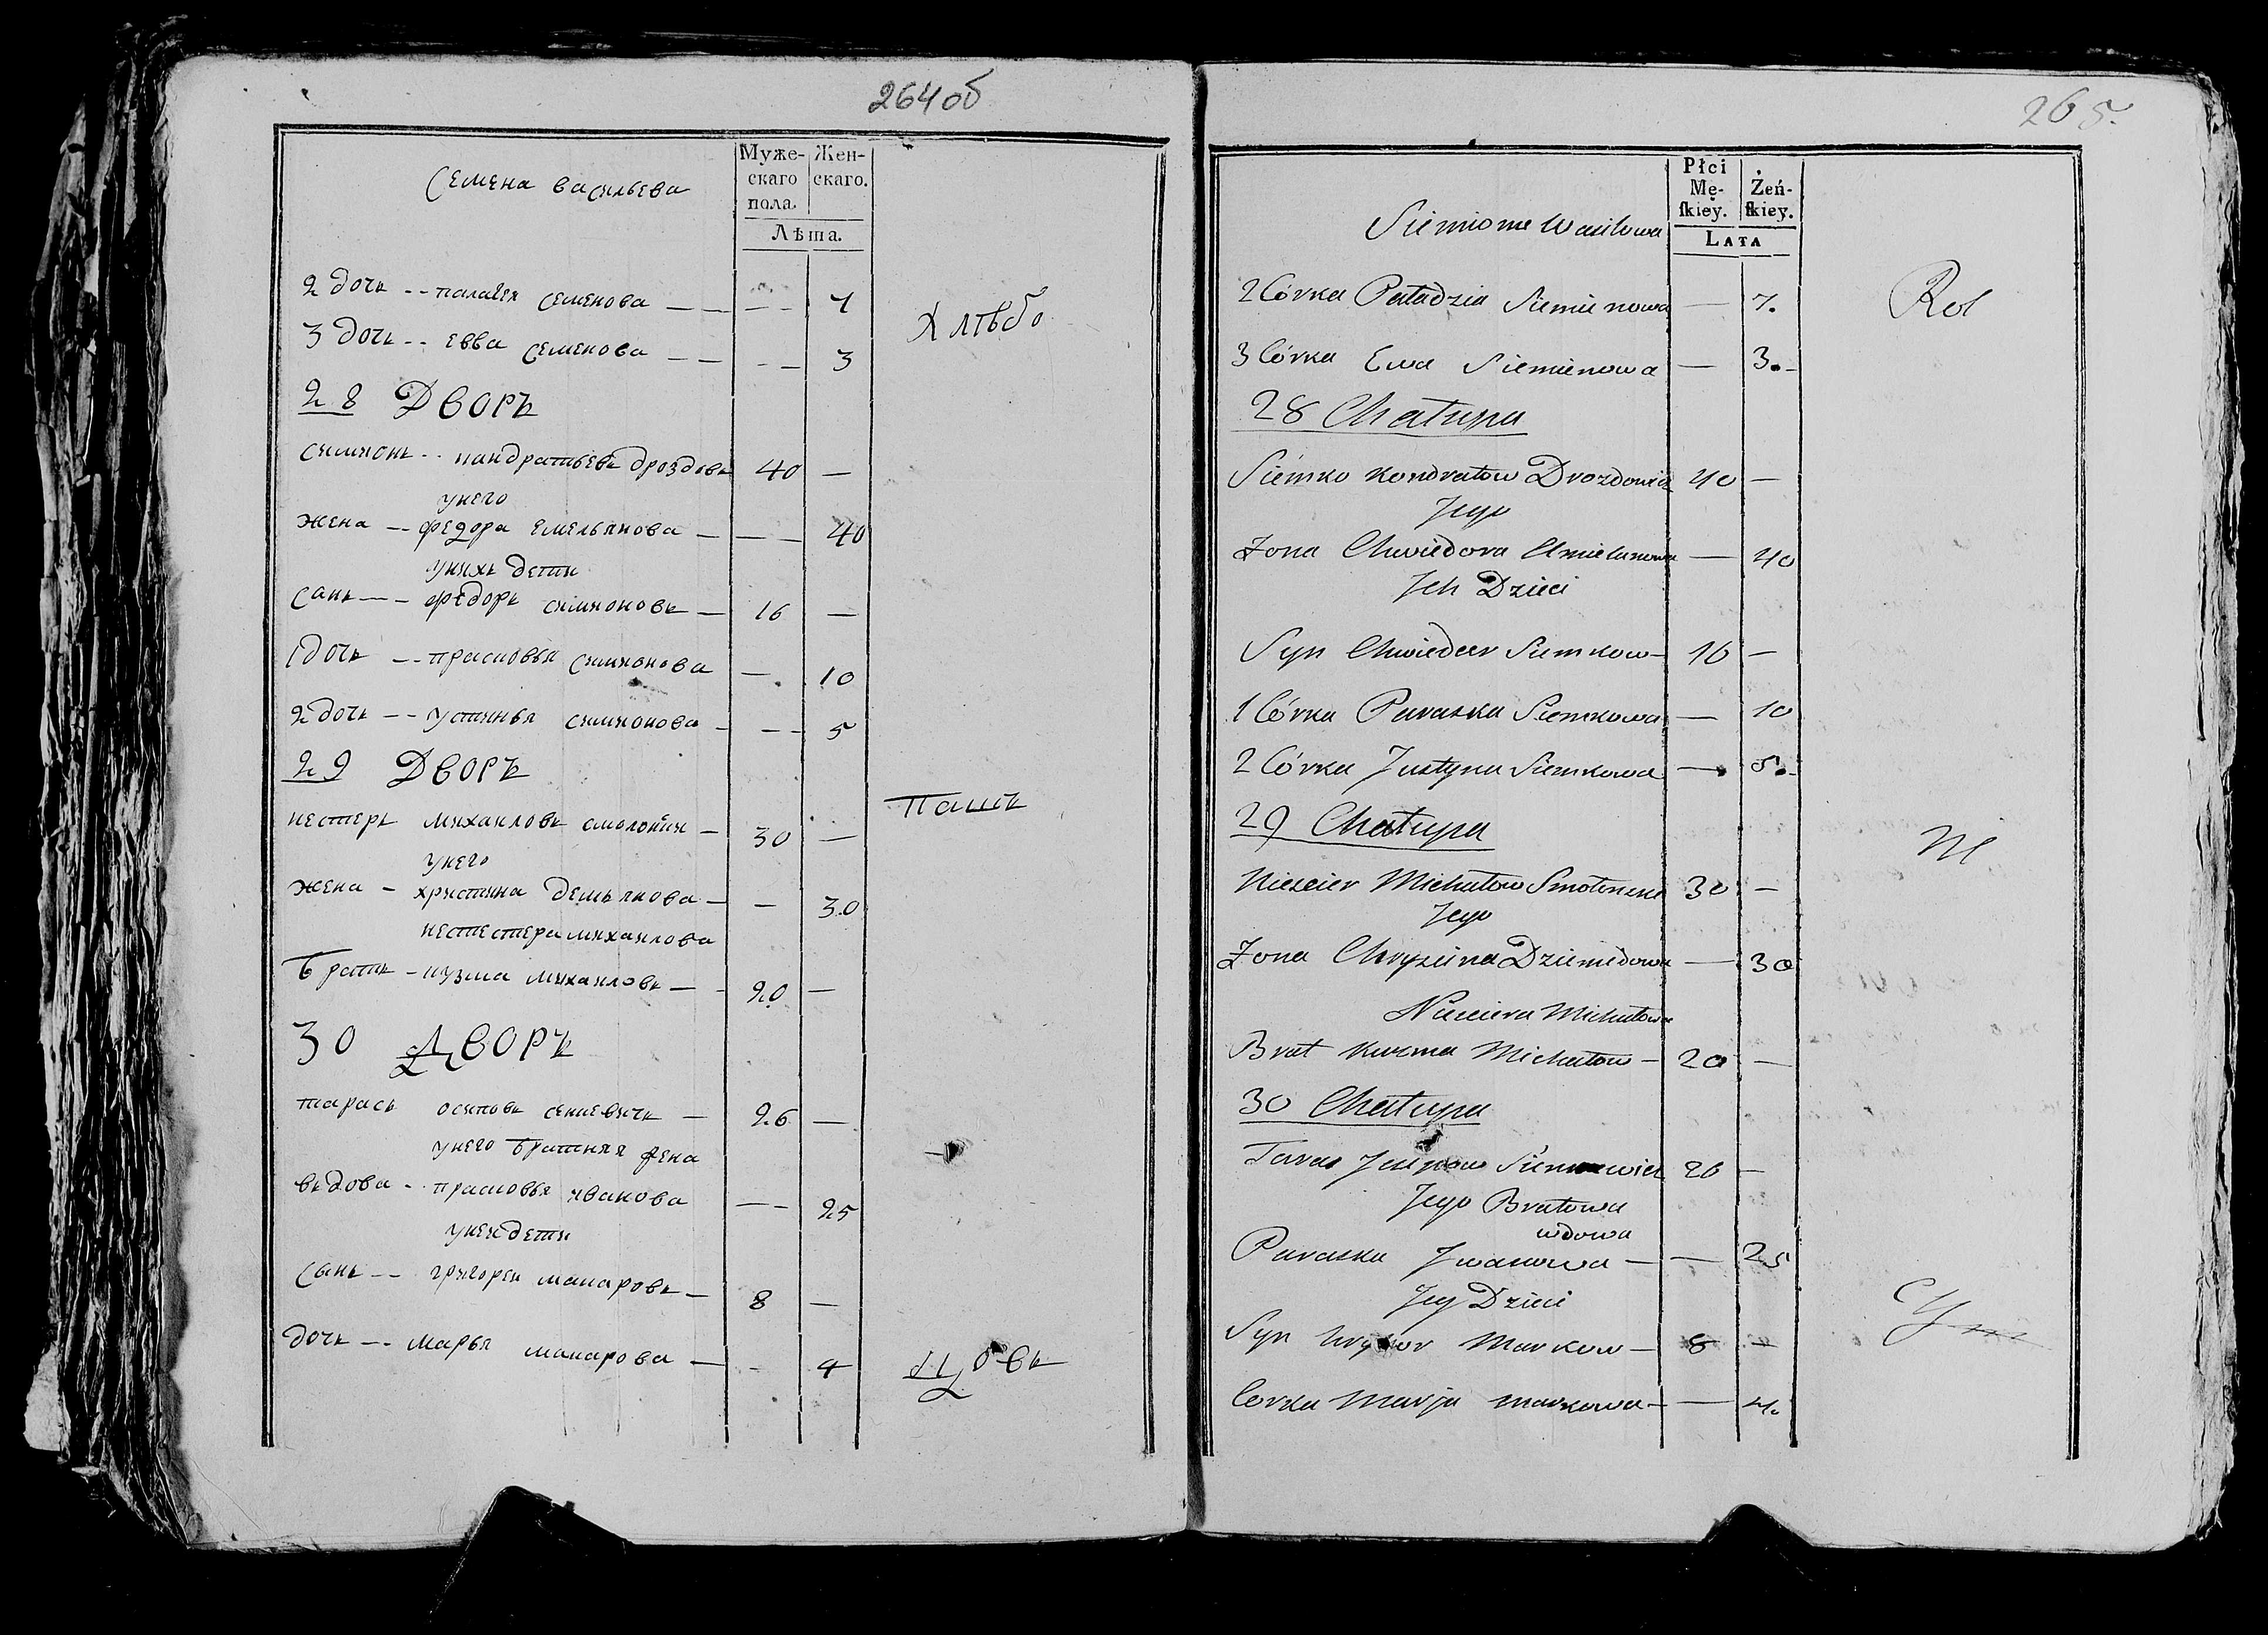 264 об
Муже- Жен-
скаго скаго.
пола
Лѣта.
Семена васильева
2 дочь -- палагея семенова — — -- — 7
Хлѣбо
3 дочь -- евва семенова — — -- — 3
28 Дворъ
симионъ -- кандратьевъ дроздовъ 40 —
унего
жена -- федора емельянова — — — 40
унихъ дети
санъ -- федоръ симионовъ — 16 —
1 дочь -- прасковья симионова — 10
2 дочь -- устинья симионова - -- 5
29 Дворъ
Пашъ
нестеръ михаиловъ — 30 —
унего
жена — христина демьянова — — 30
нестестера михаилова
братъ - кузма михаиловъ — - 20 —
30 Дворъ
тарасъ осиповъ — 26 —
унего братняя жена
въдова - прасковья иванова — - 25
унея дети
сынъ -- григореи макаровъ — 8 —
дочь -- марья макарова — - 4
цовъ
265.
Płci
Mę- Żeń-
ſkiey. ſkiey.
LATA
Siemiona Wasilowa
2 Córka Paładzia Siemienowa — 7.
Rol
3 Córka Ewa Siemienowa — 3.-
28 Chałupa
Siemko Kondratow Drozdowicz 40 —
Jego
Żona Chwiedora — 40
Jch Dzieci
Syn Chwieder Siemkow - 16 —
1 Córka Paraska Siemkowa — 10
2 Córka Justyna Siemkowa — 5.-
29 Chałupa
ni
Niescier Michałow 30 —
Jego
Żona Chryscina Dziemidowa — 30
Niesciera Michałowa
Brat Kuzma Michałow — 20 —
30 Chałupa
Taras Jusipow 26 —
Jego Bratowa
wdowa
Paraska Jwanowa — — 25
Jey Dzieci
Syn Markow — 8 —
Corka Marja Markowa - — 4.